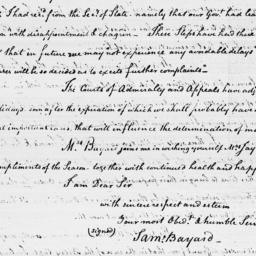 I had rec.d from the Sec.y of State. namely that our Gov.t had lea
with disappointment & chagrin - These Steps
that in future we may not experience any avoidable delays
will be so decided as to excite further complaints -
The Courts of Admiralty and Appeals have adj
lidays, immed after the expiration of which we shall probably have
important cases, that will influence the determination of m
Mrs Bayard joins me in wishing yourself Mrs Jay
compliments of the Season together with continued health and happ
I am Dear Sir
with sincere respect and esteem
Your most Obed.t & humble Ser
(signed) Sam.l Bayard -